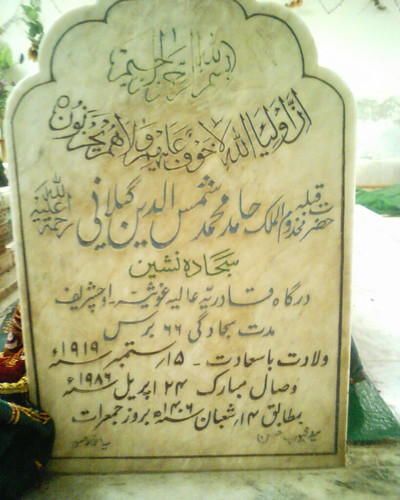 بسم الله الرحمن الرحیم
ان اولیاء الله لا خوف علیهم ولا هم یحزنون
حضرت قبلہ مخدوم الملک حامد محمد شمس الدین گیلانی رحمۃ اللہ علیہ
سجادہ نشین
درگاہ قادریہ عالیہ غوثیہ۔ اوچشریف
مدت سجادگی ۶۶ برس
ولادت باسعادت ۔ ۱۵؍ ستمبر سنہ ۱۹۱۹ء
وصال مبارک ۲۴ اپریل سنہ ۱۹۸۶ء
بمطابق ۱۴؍ شعبان سنہ ۱۴۰۶ھ بروز جمعرات